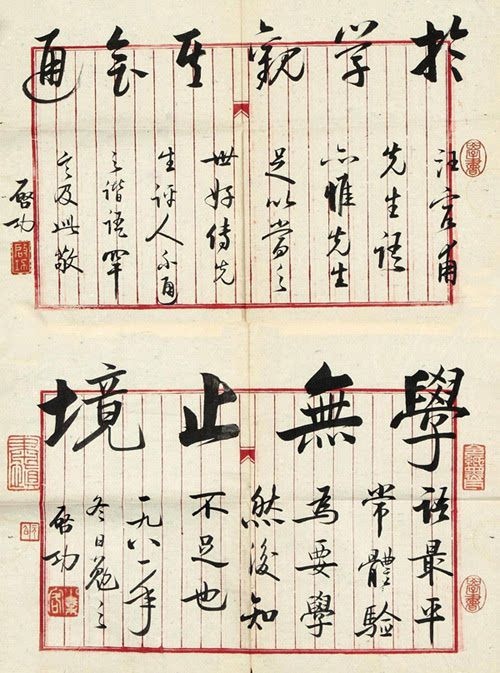 於学觀其會通
汪容甫
先生語
亦惟先生
足以當之
世好傳先
生評人不通
之諧語罕
言及此敬
啟功
學無止境
語最平
常體驗
為要學
然後知
不足也
一九八一年
冬日勉之
啟功